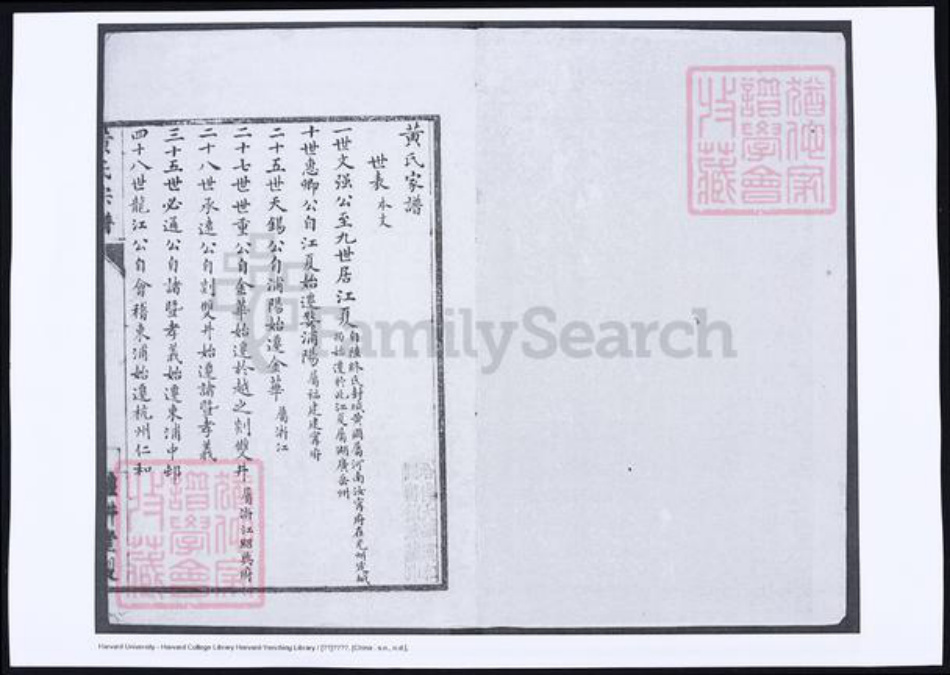 黃氏家譜
世表 本文
一世文强公至九世居江夏
自陸終氏封城黃國屬河南汝寧府在光州
始遷於此江夏屬湖廣岳州
十世惠卿公自江夏始遷婺浦陽屬福建建寧府
二十五世天錫公自浦陽始遷金華屬浙江
二十七世世重公自金華始遷於越之剡雙井屬浙江紹興府
二十八世承遠公自剡雙井始遷諸暨孝義
三十五世必通公自諸暨孝義始遷東浦中邨
四十八世龍江公自會稽東浦始遷杭州仁和
黃氏宗譜
FamilySearch
Harvard University - Harvard College Library Harvard-Yenching Library / [??]????. [China : s.n., n.d.].